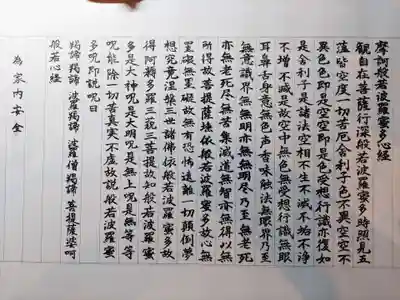 摩訶般若波羅蜜多心経
觀自在菩薩行深般若波羅蜜多時照見五
蘊皆空度一切苦厄舎利子色不異空空不
異色色即是空空即是色受想行識亦復如
是舎利子是諸法空相不生不滅不垢不浄
不増不減是故空中無色無受想行識無眼
耳鼻舌身意無色声香味触法無眼界乃至
無意識界無無明亦無無明尽乃至無老死
亦無老死尽無苦集滅道無智亦無得以無
所得故菩提薩埵依般若波羅蜜多故心無
罣礙無罣礙故無有恐怖遠離一切顛倒夢
想究竟涅槃三世諸佛依般若波羅蜜多故
得阿耨多羅三藐三菩提故知般若波羅蜜
多是大神呪是大明呪是無上呪是無等等
呪能除一切苦真実不虚故説般若波羅蜜
多呪即説呪曰
羯諦羯諦 波羅羯諦 波羅僧羯諦 菩提薩婆呵
般若心経
為家内安全